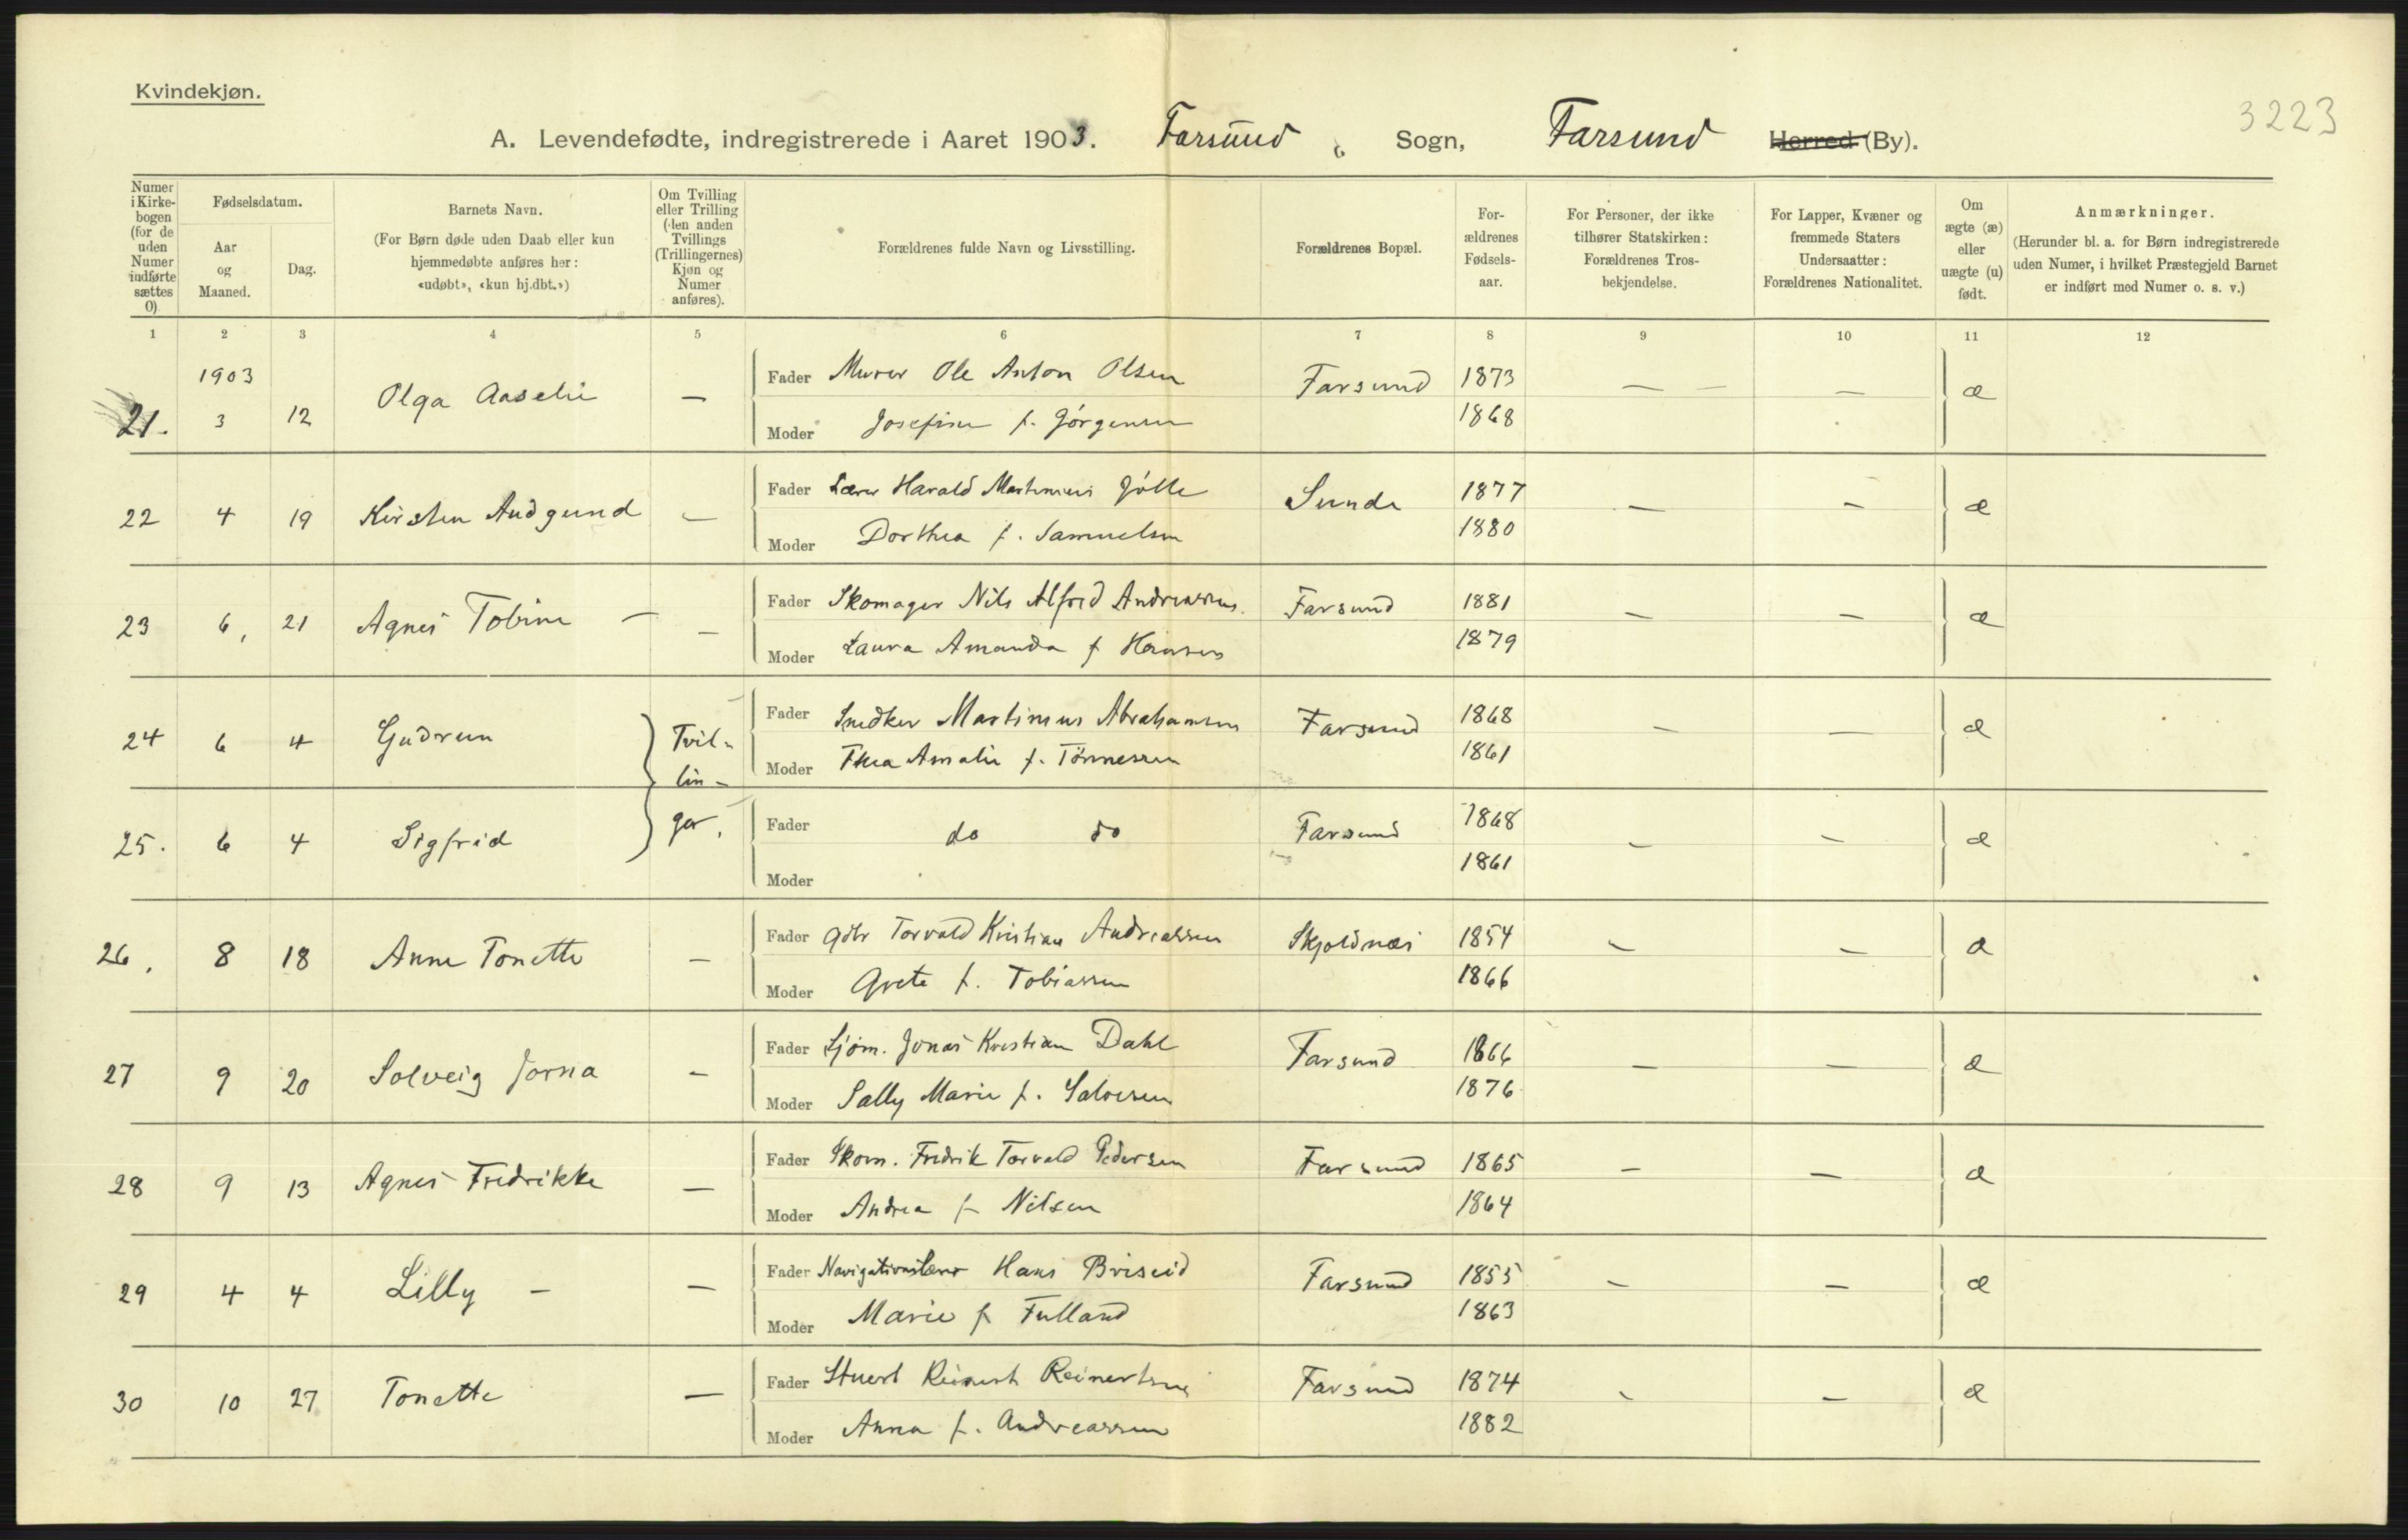 Kvindekjøn.
3223
A. Levendefødte, indregistrerede i Aaret 1903. Farsund Sogn, Farsund Herred (By).
Numer i Kirkebogen (for de uden Numer indførte sættes 0)
Fødselsdatum.
Aar og Maaned.
Dag.
Barnets Navn.
(For Børn døde uden Daab eller kun hjemmedøbte anføres her: «udøbt», «kun hj.dbt.»)
Om Tvilling eller Trilling (den anden Tvillings (Trillingernes) Kjøn og Numer anføres).
Forældrenes fulde Navn og Livsstilling.
Forældrenes Bopæl.
Forældrenes Fødselsaar.
For Personer, der ikke tilhører Statskirken: Forældrenes Trosbekjendelse.
For Lapper, Kvæner og fremmede Staters Undersaatter: Forældrenes Nationalitet.
Om ægte (æ) eller uægte (u) født.
Anmærkninger.
(Herunder bl. a. for Børn indregistrerede uden Numer, i hvilket Præstegjeld Barnet er indført med Numer o. s. v.)
1 2 3 4 5 6 7 8 9 10 11 12
1903
21. 3 12 Olga Aaselie — Fader Murer Ole Anton Olsen Farsund 1873 — — æ
Moder Josefine f. Jørgensen 1868
22 4 19 Kirsten Audgund — Fader Lærer Harald Martinius Jølle Sunde 1877 — — æ
Moder Dorthea f. Samuelsen 1880
23 6, 21 Agnes Tobine — — Fader Skomager Nils Alfred Andreassen. Farsund 1881 — — æ
Moder Laura Amanda f Hansen 1879
24 6 4 Gudrun Tvil- Fader Snedker Martinius Abrahamsen Farsund 1868 — — æ
lin- Moder Thea Amalie f. Tønnessen 1861
25. 6 4 Sigfrid ger. Fader do do Farsund 1868 — — æ
Moder 1861
26. 8 18 Anne Tonette — Fader Gdbr Torvald Kristian Andreassen Skjoldnæs 1854 — — æ
Moder Grete f. Tobiassen 1866
27 9 20 Solveig Jorna — Fader Sjøm. Jonas Kristian Dahl Farsund 1866 — — æ
Moder Sally Marie f. Salvesen 1876
28 9 13 Agnes Fredrikke — Fader Skom. Fredrik Torvald Pedersen Farsund 1865 — — æ
Moder Andrea f Nilsen 1864
29 4 4 Lilly — — Fader Navigationslærer Hans Briseid Farsund 1855 — — æ
Moder Marie f Fulland 1863
30 10 27 Tonette — Fader Stuert Reinert Reinertsen Farsund 1874 — — æ
Moder Anna f. Andreassen 1882